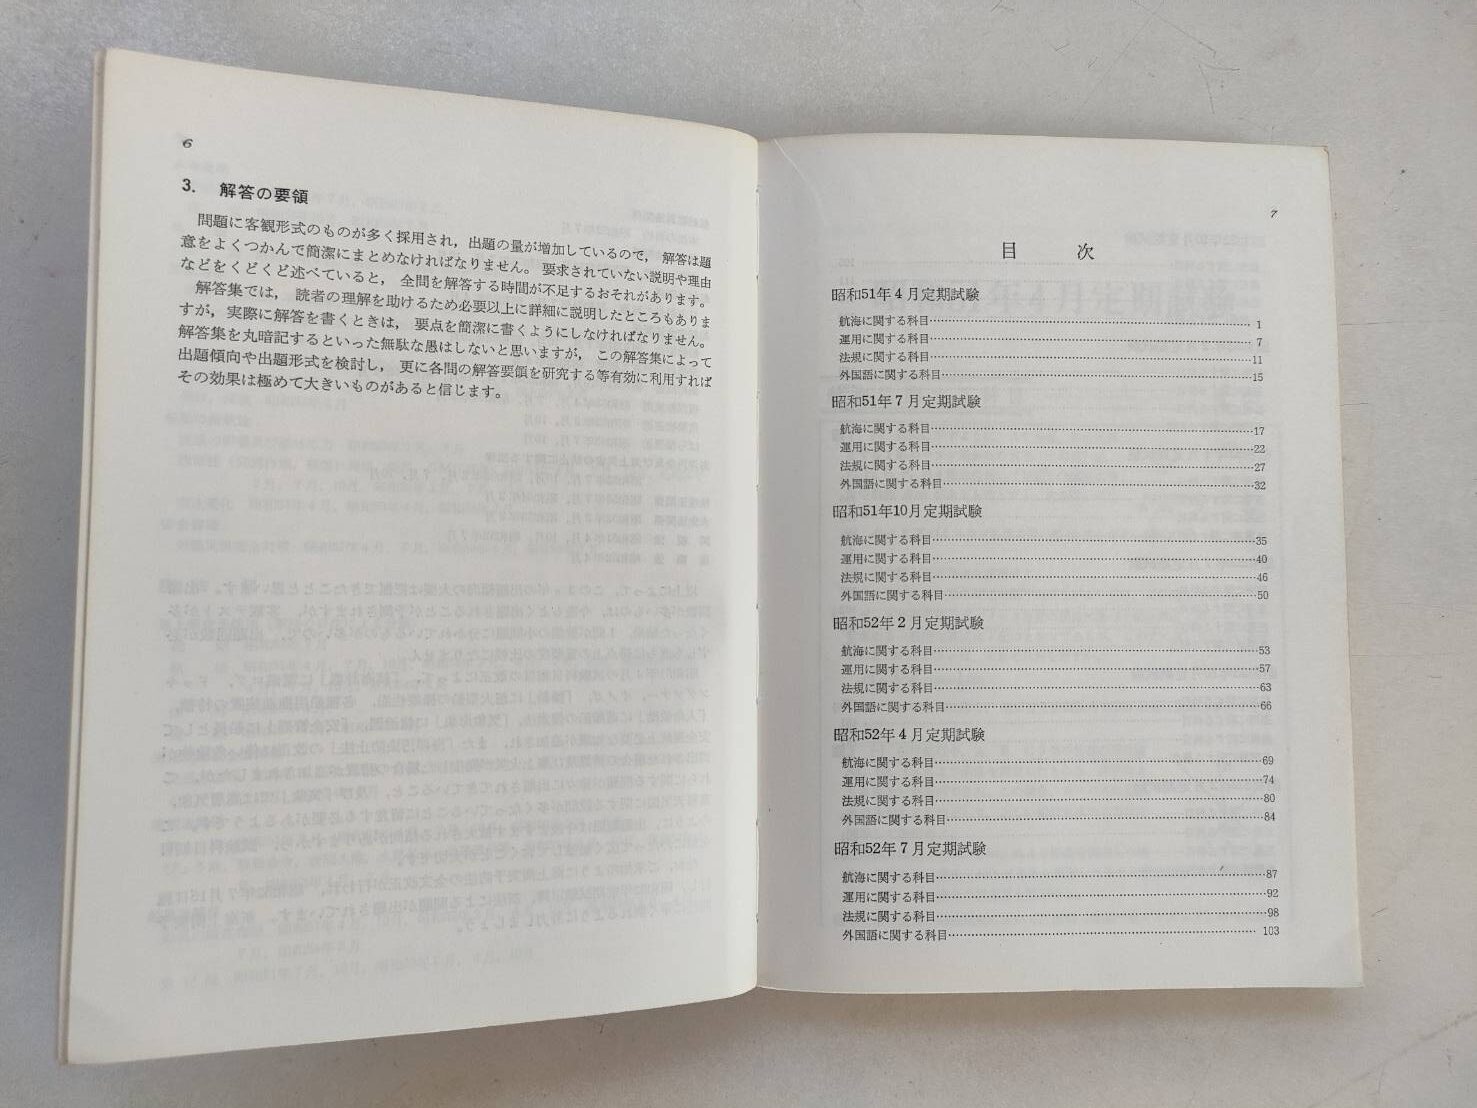 6
3. 解答の要領
問題に客観形式のものが多く採用され，出題の量が増加しているので，解答は題
意をよくつかんで簡潔にまとめなければなりません。要求されていない説明や理由
などをくどくど述べていると，全問を解答する時間が不足するおそれがあります。
解答集では，読者の理解を助けるため必要以上に詳細に説明したところもありま
すが，実際に解答を書くときは，要点を簡潔に書くようにしなければなりません。
解答集を丸暗記するといった無駄な愚はしないと思いますが，この解答集によって
出題傾向や出題形式を検討し，更に各問の解答要領を研究する等有効に利用すれば
その効果は極めて大きいものがあると信じます。
7
目　次
昭和51年4月定期試験
航海に関する科目…………1
運用に関する科目…………7
法規に関する科目…………11
外国語に関する科目…………15
昭和51年7月定期試験
航海に関する科目…………17
運用に関する科目…………22
法規に関する科目…………27
外国語に関する科目…………32
昭和51年10月定期試験
航海に関する科目…………35
運用に関する科目…………40
法規に関する科目…………46
外国語に関する科目…………50
昭和52年2月定期試験
航海に関する科目…………53
運用に関する科目…………57
法規に関する科目…………63
外国語に関する科目…………66
昭和52年4月定期試験
航海に関する科目…………69
運用に関する科目…………74
法規に関する科目…………80
外国語に関する科目…………84
昭和52年7月定期試験
航海に関する科目…………87
運用に関する科目…………92
法規に関する科目…………98
外国語に関する科目…………103